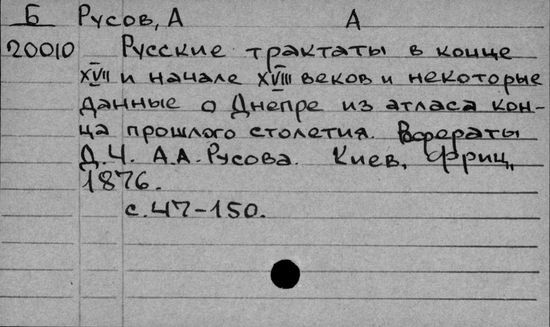 Б Русов, А А
20010 Русские трактаты в конце
XVII и начале XVIII веков и некоторые
данные о Днепре из атласа кон-
ца прошлого столетия.
Д.Ч. А.А. Русова. Киев, Фриц,
1876.
с. 47-150.